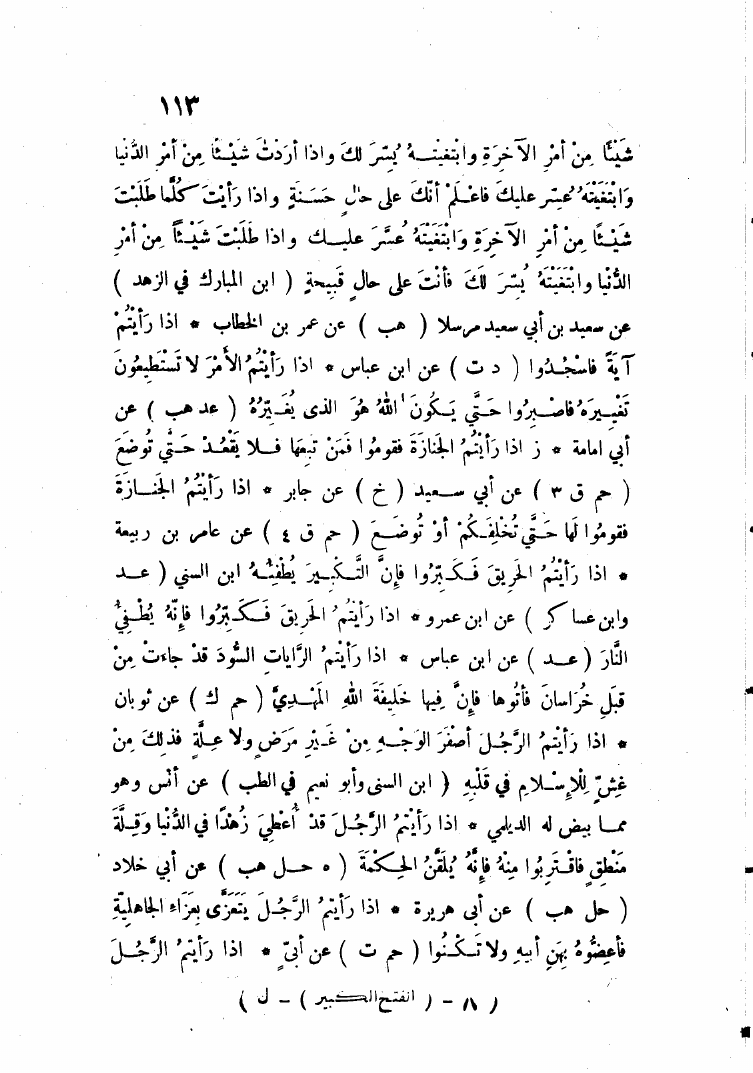 ١١٣
شَيْئًا مِنْ أمْرِ الآخِرَةِ وابْتَغَيْتَهُ يُسِّرَ لكَ واذا أرَدْتَ شَيْئًا مِنْ أمْرِ الدُّنْيا
وَابْتَغَيْتَهُ عُسِّر عليكَ فاعْلَمْ أنَّكَ على حالٍ حَسَنَةٍ واذا رَأيْتَ كُلَّما طَلَبْتَ
شَيْئًا مِنْ أمْرِ الآخِرَةِ وَابْتَغَيْتَهُ عُسِّرَ عليك واذا طَلَبْتَ شَيْئًا مِنْ أمْرِ
الدُّنْيا وابْتَغَيْتَهُ يُسِّرَ لكَ فأنْتَ على حالٍ قَبِيحةٍ ( ابن المبارك في الزهد )
عن سعيد بن أبي سعيد مرسلا ( هب ) عن عمر بن الخطاب * اذا رَأيْتُمْ
آيَةً فاسْجُدُوا ( د ت ) عن ابن عباس * اذا رَأيْتُمُ الأمْرَ لا تَسْتَطِيعُونَ
تَغْيِيرَهُ فاصْبِرُوا حَتَّى يَكُونَ اللهُ هُوَ الذى يُغَيِّرُهُ ( عد هب ) عن
أبي امامة * ز اذا رَأيْتُمُ الجَنازَةَ فقومُوا فَمَنْ تبِعَها فلا يَقْعُدْ حَتَّي تُوضَعَ
( حم ق ٣ ) عن أبي سعيد ( خ ) عن جابر * اذا رَأيْتُمُ الجَنازَةَ
فقومُوا لَها حَتَّي تُخْلِفَكُمْ أوْ تُوضَعَ ( حم ق ٤ ) عن عامر بن ربيعة
* اذا رَأيْتُمُ الحَرِيقَ فَكَبِّرُوا فإنَّ التَّكْبِيرَ يُطْفِئُهُ ابن السني ( عد
وابن عساكر ) عن ابن عمرو * اذا رَأيتمُ الحَرِيقَ فَكَبِّرُوا فإنَّهُ يُطْفِئُ
النَّارَ ( عد ) عن ابن عباس * اذا رَأيتمُ الرَّاياتِ السُّودَ قدْ جاءَتْ مِنْ
قِبَلِ خُرَاسانَ فأتُوها فإنَّ فِيها خَلِيفَةَ اللهِ المَهْدِيَّ ( حم ك ) عن ثوبان
* اذا رَأيْتمُ الرَّجُلَ أصْفَرَ الوَجْهِ مِنْ غَيْرِ مَرَضٍ ولا عِلَّةٍ فذلكَ مِنْ
غِشٍّ لِلْإسْلامِ في قَلْبِهِ ( ابن السنى وأبو نعيم في الطب ) عن أنس وهو
مما بيض له الديلمي * اذا رَأيْتُمُ الرَّجُلَ قدْ أُعْطِيَ زُهْدًا في الدُّنْيا وَقِلَّةَ
مَنْطِقٍ فاقْتَرِبُوا مِنْهُ فإنَّهُ يُلَقَّنُ الحِكْمَةَ ( ه حل هب ) عن أبي خلاد
( حل هب ) عن أبى هريرة * اذا رَأيتمُ الرَّجُلَ يَتَعَزَّى بِعَزَاءِ الجاهلِيَّةِ
فأعِضُّوهُ بِهَنِ أبيهِ ولا تَكْنُوا ( حم ت ) عن أبيٍّ * اذا رَأيتمُ الرَّجُلَ
( ٨ - ( الفتح الكبير ) - ل )